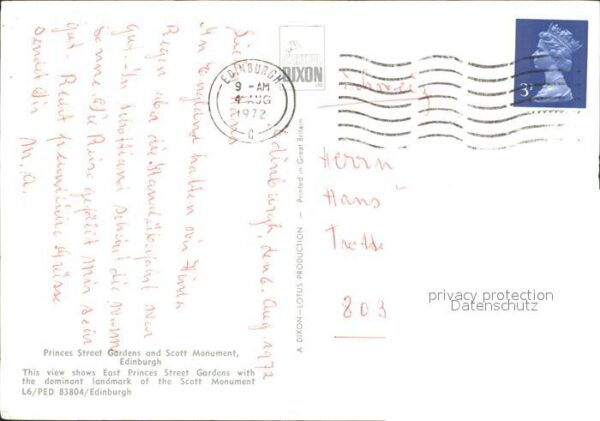 Edinburgh, den 6. Aug 1972
In England hatten wir
Regen aber die
gut. In Schottland scheint die warme
Sonne. Die Reise gefällt mir sehr
gut. Recht freundliche Grüsse
sendet Dir
M.A.
DIXON
EDINBURGH
9 - AM
4 AUG
1972
C
3P
Schweiz
Herrn
Hans
803
A DIXON—LOTUS PRODUCTION — Printed in Great Britain
privacy protection
Datenschutz
Princes Street Gardens and Scott Monument,
Edinburgh
This view shows East Princes Street Gardens with
the dominant landmark of the Scott Monument
L6/PED 83804/Edinburgh